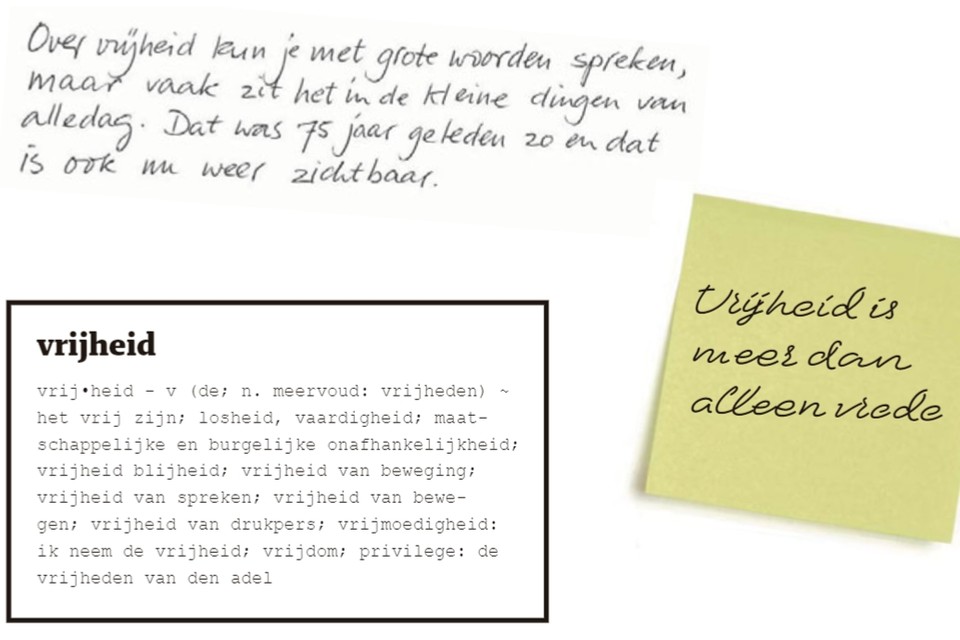 Over vrijheid kun je met grote woorden spreken,
maar vaak zit het in de kleine dingen van
alledag. Dat was 75 jaar geleden zo en dat
is ook nu weer zichtbaar.
vrijheid
vrij•heid – v (de; n. meervoud: vrijheden) ~
het vrij zijn; losheid, vaardigheid; maat-
schappelijke en burgelijke onafhankelijkheid;
vrijheid blijheid; vrijheid van beweging;
vrijheid van spreken; vrijheid van bewe-
gen; vrijheid van drukpers; vrijmoedigheid:
ik neem de vrijheid; vrijdom; privilege: de
vrijheden van den adel
Vrijheid is
meer dan
alleen vrede